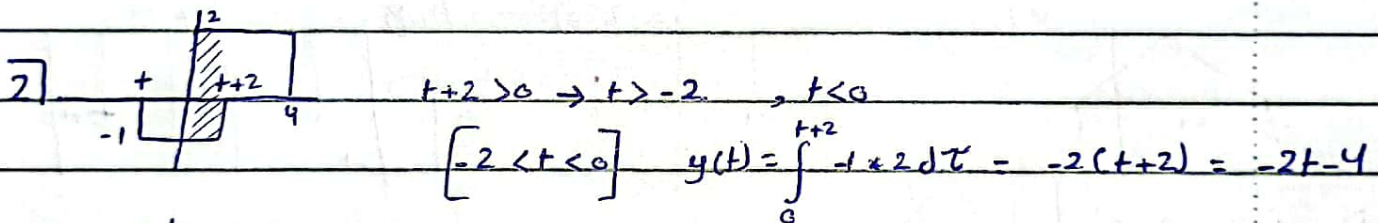 2
2] t t+2 t+2 >0 → t> -2 , t<0
-1 4
[-2 <t <0] y(t) = ∫₀^{t+2} -1 * 2 dτ = -2(t+2) = -2t-4